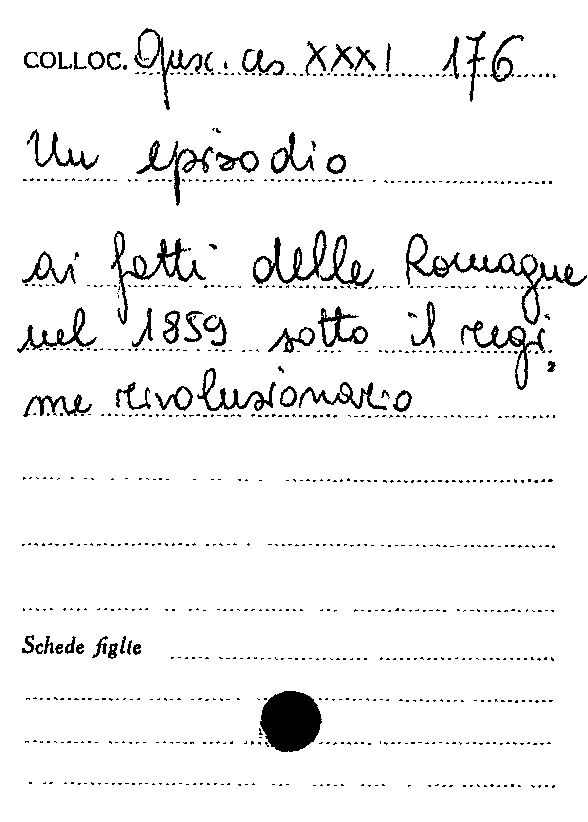 COLLOC. Qusc. as XXXI 176
Un episodio
ai fatti delle Romagne
nel 1859 sotto il regi,
me rivoluzionario
Schede figlie